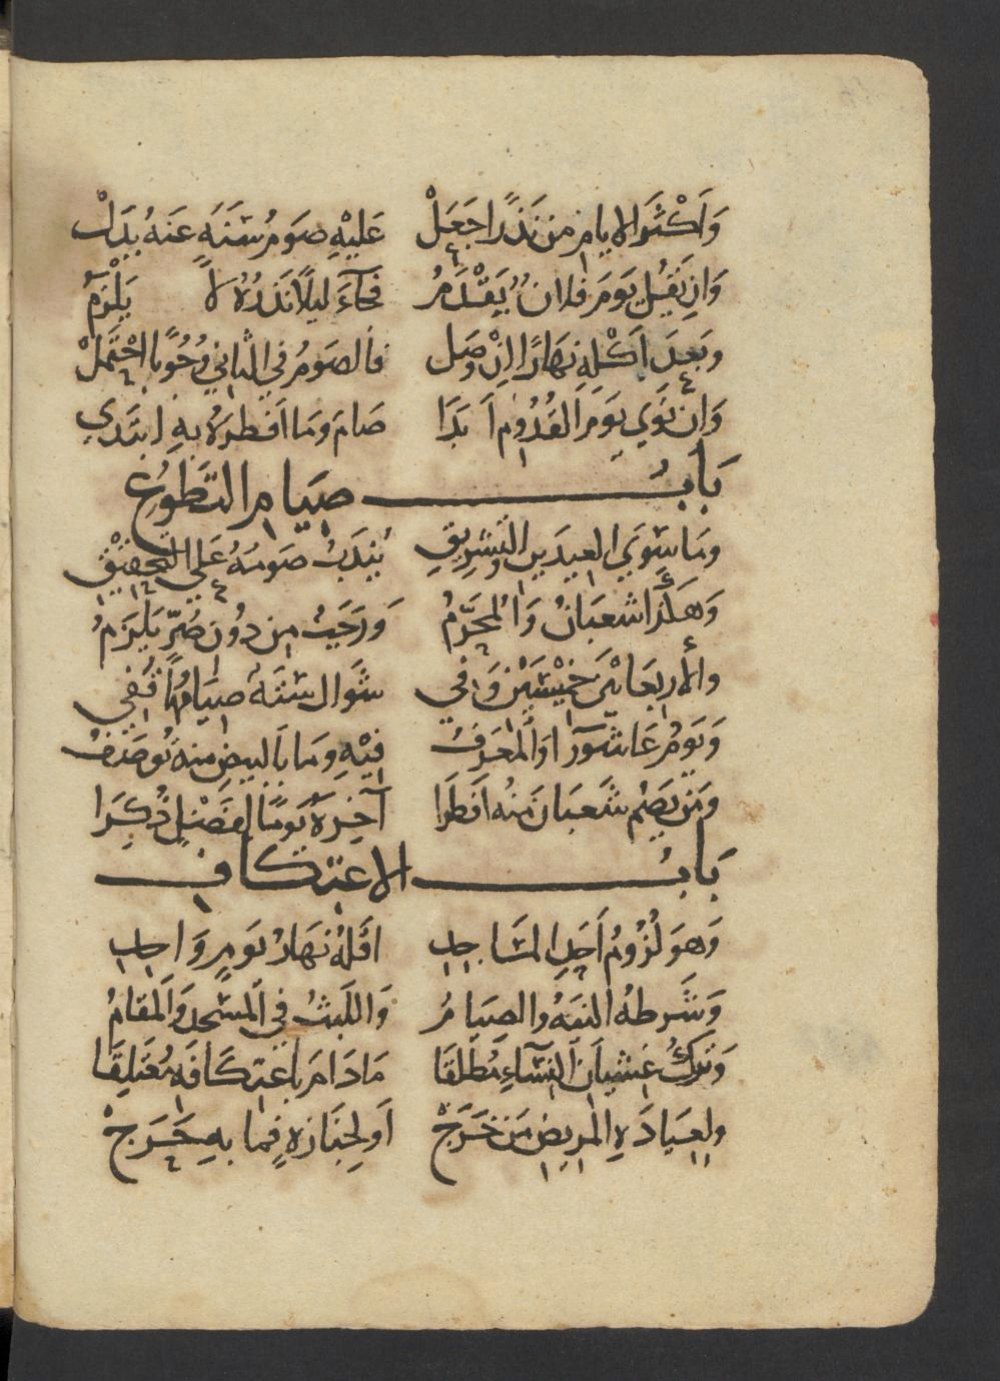 وَاَكْثَرَ الايامِ من نَذْرًا جَعَلْ عَلَيْهِ صَومُ سَنَةٍ عَنهُ بَدَلْ
وَاِن يَقُل يَومَ فلان يَقْدَمُ فَجَآءَ ليلًا نَذرُهُ لَا يَلْزَمُ
وبَعدَ اَكْلِهِ نَهَارًا اِنْ وصَل فالصَومُ في الثاني وُجُوبًا احْتَمَلْ
وَاِن نَوَي يَومَ القُدُومِ اَبَدَا صَامَ وَمَا اَفطرَهُ بهِ ابتَدي
بَابُ صِيَامِ التَّطَوُّعِ
ومَا سِوَي العِيدَينِ والتَشرِيقِ يُندَبُ صَومُهُ عَلي التَحقِيْقِ
وَهكَذا شعبَانُ وَالمُحَرَّمُ وَرَجَبُ مِن دُونِ ضُرٍّ يَلزَمُ
والأربِعَا ثمَّ خَمِيْسَيْنِ وَفي شَوال سِتَةٌ صِيَامُهَا قُفِي
وَيَومُ عَاشورآ اَوالمُعَرَفُ فِيْهِ ومَا بالبِيضِ مِنهُ تُوصَفُ
ومَن يَصُم شَعبَانَ مِنهُ اَفطَرَا آخِرَهُ يَومًا لِفَضْلٍ ذُكِرَا
بَابُ الاعتِكافِ
وَهوَ لُزُومُ اَحَدِ المسَاجِدِ اَقَلهُ نهَارُ يَومٍ وَاحِدِ
وَشَرطهُ النيَه والصِيَامُ وَاللَبثُ في المَسْجِدِ وَالمقامُ
وَتَركُ غِشيانِ النِسَآءِ مُطلَقَا مَادَامَ باعتِكَافَهِ مُعَلِقَا
ولِعِيَادَةِ المرِيضِ مَن خَرَجْ اَو لجَنَازةٍ فمَا بهِ حَرَجْ